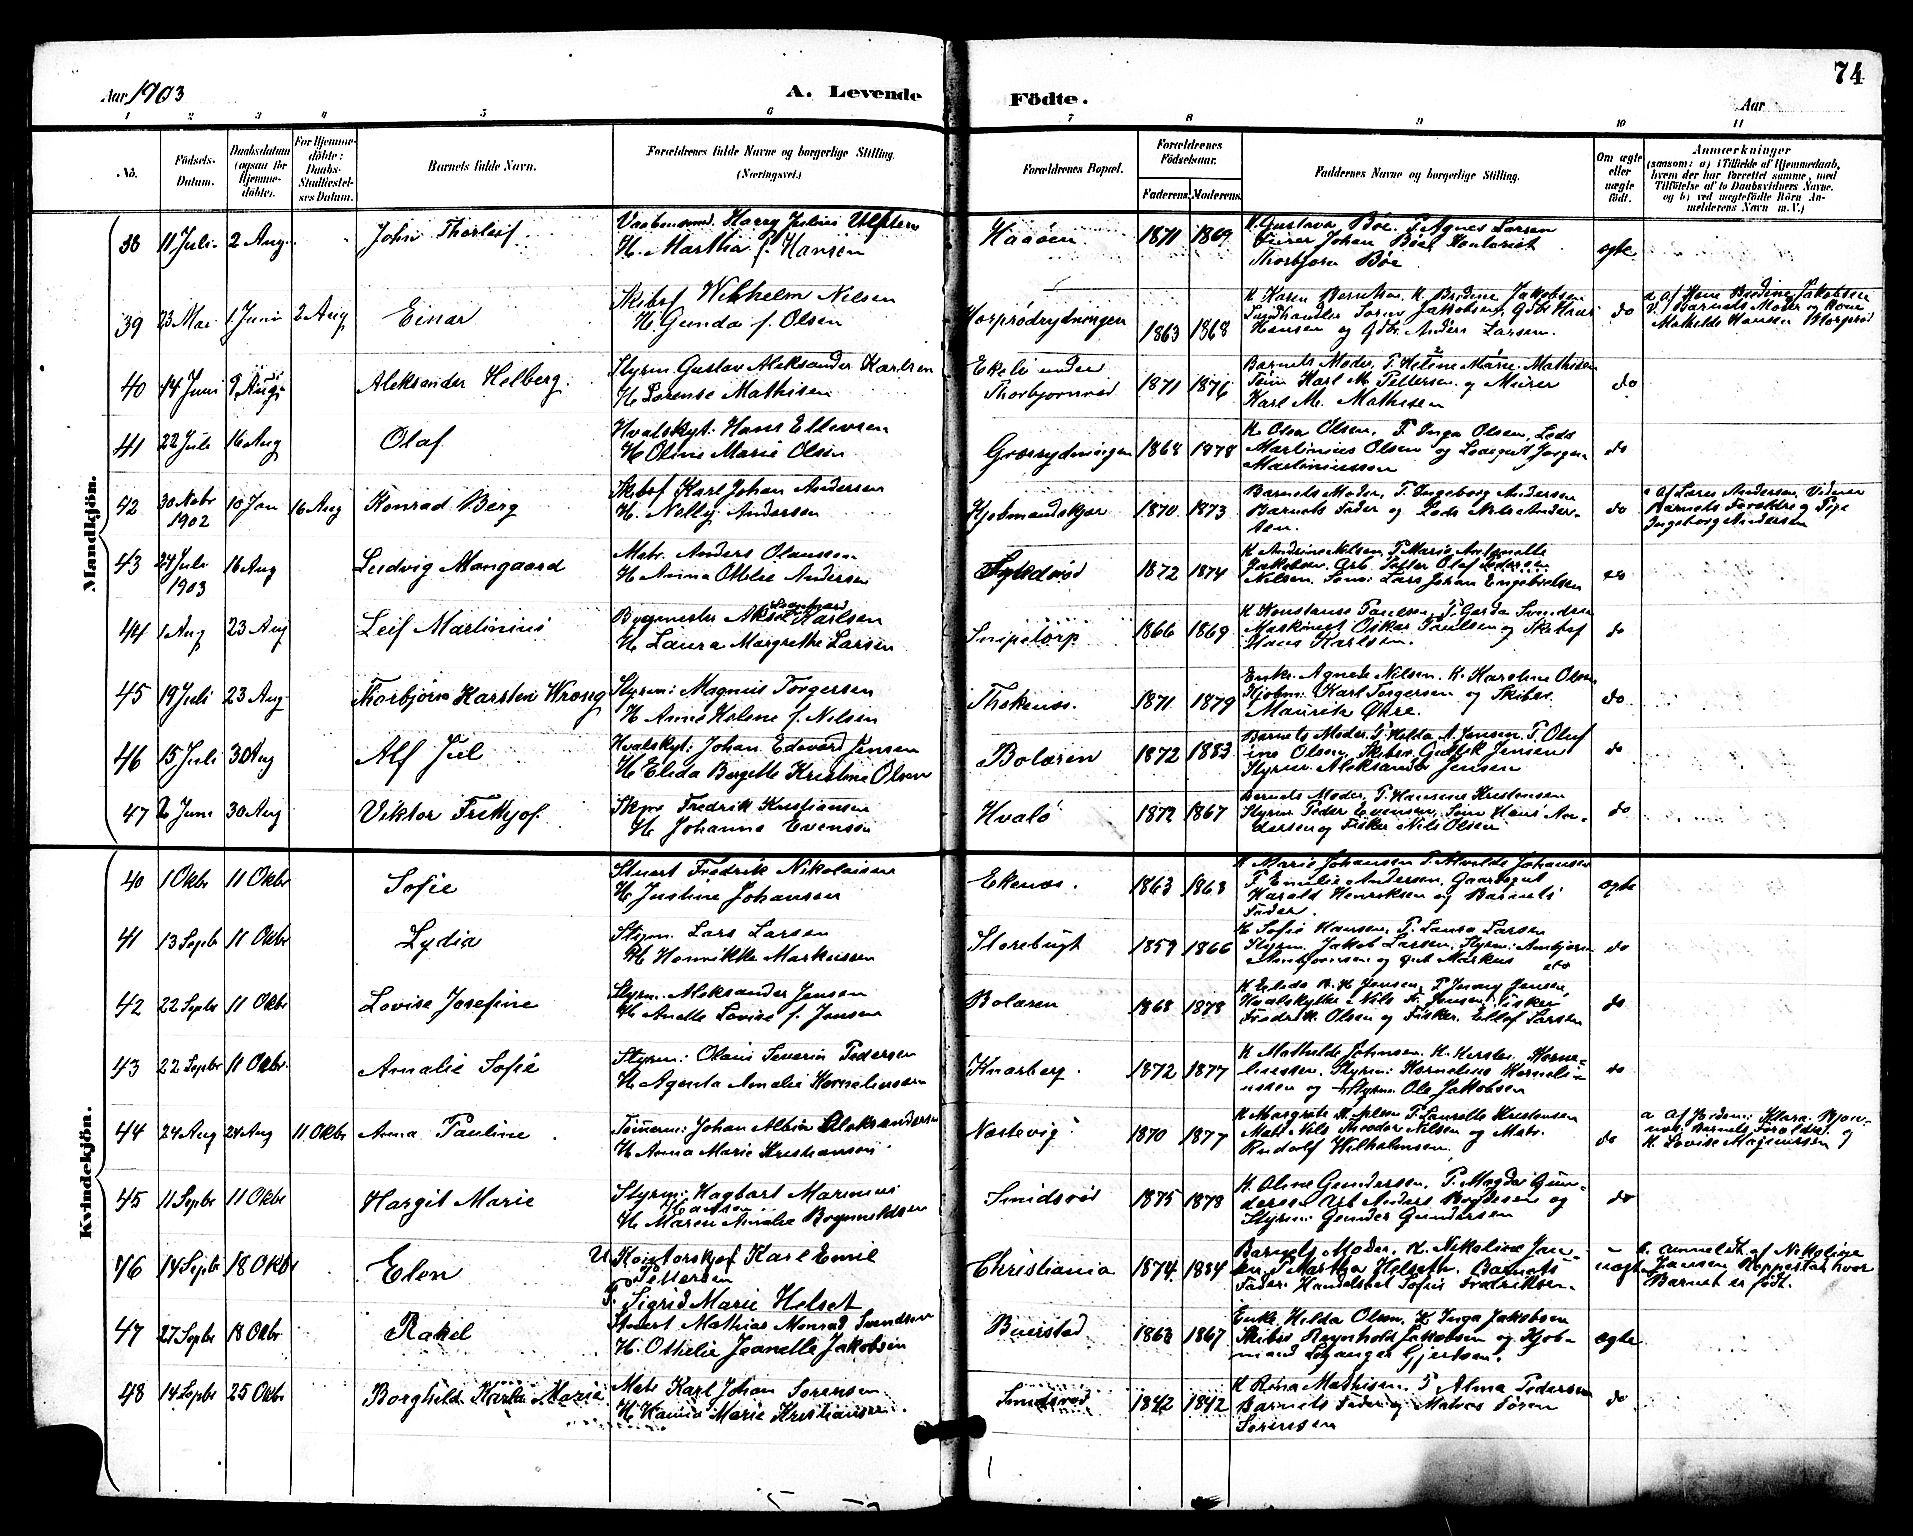 74
Aar 1903
A. Levende Födte.
Aar
1 2 3 4 5 6 7 8 9 10 11
No.
Födsels-Datum.
Daabsdatum (ogsaa for Hjemmedöbte).
For Hjemmedöbte: Daabs-Stadfæstelses Datum.
Barnets fulde Navn.
Forældrenes fulde Navne og borgerlige Stilling. (Næringsvei.)
Forældrenes Bopæl.
Forældrenes Födselsaar.
Faderens. Moderens.
Faddernes Navne og borgerlige Stilling.
Om ægte eller uægte födt.
Anmærkninger
(saasom: a) i Tilfælde af Hjemmedaab, hvem der har forrettet samme, med Tilföielse af to Daabsvidners Navne, og b) ved uægtefödte Börn Anmelderens Navn m. V.)
Mandkjön.
38 11 Juli 2 Aug. John Thorleif
Harry Julius
H. Marthia f. Hansen
Haaöen 1871 1869
K. Gustava Böe. P. Agnes Larsen
Johan Böe, Kontorist
Thorbjorn Böe
ægte
39 23 Mai 1 Juni 2 Aug Einar
Skibsf Wilhelm Nilsen
H. Gunda f. Olsen
Horprödrydningen 1863 1868
K Karen Berntsen. K. Bredine Jakobsen
Jakobsen, Gdbr Hans
Hansen og Gdbr. Anders Larsen.
do
a. af Kone Bredine Jakobsen
V. Barnets Moder og Kone
Mathilde Hansen
40 14 Juni 9 Aug Aleksander Helberg.
Styrm. Gustav Aleksander Karlsen
H Lorense Mathisen
Ekeli under
1871 1876
Barnets Moder, P. Heline Marie Mathisen
Töm Karl M. Pettersen og Murer
Karl M. Mathisen
do
41 22 Juli 16 Aug Olaf
Hvalskyt. Hans Ellevsen
H Oline Marie Olsen
Græsrydningen 1868 1878
K. Olsen, P. Inga Olsen, Lods
Martinius Olsen og Jörgen
Martiniussen
do
42 30 Nobr 1902 10 Jan 16 Aug Konrad Berg
Skibsf Karl Johan Andersen
H. Nelly Andersen
Kjöbmandskjær 1870 1873
Barnets Moder, P. Ingeborg Andersen
Barnets Fader og Lods Nils Andersen.
do
a af Lærer Andersen. Vidner
Barnets Forældre og Pige
Ingeborg Andersen
43 24 Juli 1903 16 Aug Ludvig Mangaard
Matr. Anders Olaussen
H Anna Othilie Andersen
1872 1874
K Andrine Nilsen, P. Marie
Jakobsen. Arb. Olaf
Nilsen, Lars Johan Engebretsen
do
44 1 Aug 23 Aug Leif Martinius
Bygmester Aksel Karlsen
H Laura Margrethe Larsen
Snipetorp 1866 1869
K Konstanse Paulsen, P. Gerda
Maskinist Oskar Paulsen og Skibsf
Hans Karlsen.
do
45 19 Juli 23 Aug Thorbjörn Karsten Wrong
Styrm: Magnus Torgersen
H Anne Helene f. Nilsen
1871 1879
Enke Agnete Nilsen. K. Karoline Olsen
Kjöbm: Karl Torgersen og Skibsr.
Maurits Ökre.
do
46 15 Juli 30 Aug Alf Juel
Hvalskyt: Johan Edvard Jensen
H Elida Bergitte Kristine Olsen
Bolæren 1872 1883
Barnets Moder, P. Helda A. Jensen. P. Olufine Olsen, Skibsr. Jensen
Styrm Aleksander Jensen
do
47 2 Juni 30 Aug Viktor Fritjof.
Fredrik Kristiansen
H Johanne Evensen
Hvalö 1872 1867
Barnets Moder, P. Hansine Kristensen
Styrm Peder Evensen, Töm Hans Andersen og Fisker Nils Olsen
do
Kvindekjön.
40 1 Okbr 11 Okbr Sofie
Stuert Fredrik Nikolaisen
H. Justine Johansen
Ekenæs. 1863 1868
K Marie Johansen P. Alvilde Johansen
P Emilie Andersen. Gaardbgut
Harald Henriksen og Barnets
Fader.
ægte
41 13 Septr 11 Okbr Lydia
Styrm. Lars Larsen
H Henrikke Markussen
Storebugt 1859 1866
K Sofie Hansen. P. Laura Larsen
Styrm. Jakob Larsen, Styrm: Ambjörn
Ambjörnsen og Markus
do
42 22 Septr 11 Okbr Lovise Josefine
Styrm. Aleksander Jensen
H Anette Lovise f. Jensen
Bolæren 1868 1878
K Elida K. H Jensen, P Jenny Jensen,
Hvalskytter Nils A. Jensen, Fisker
Fredrik Olsen og Fisker. Ellef Larsen
do
43 22 Septr 11 Okbr. Amalie Sofie
Styrm: Olaus Severin Pedersen
H Agenta Amalie Korneliussen
Knarberg. 1872 1877
K Mathilde Johnsen. K. Korneliussen. Styrm: Kornelius Korneliussen og Styrm. Ole Jakobsen
do
44 24 Aug 24 Aug 11 Okbr Anna Pauline
Tömmerm: Johan Albin Aleksandersen
H Anna Marie Kristiansen
Næstevig 1870 1877
K Margrete P. Laurette Kristensen
Matr Nils Theodor Nilsen og Matr.
Rudolf Wilhelmsen
do
a. af Jordem: Klara
Barnets Forældre og
K. Lovise Magnussen
45 11 Septr 11 Okbr Hargit Marie
Styrm: Hagbart Marinius
Hansen
H. Maren Amalie
Smidsröd 1875 1878
K. Oline Gundersen, P. Magda Gundersen Arb Anders og
Styrm: Gunder Gundersen
do
46 14 Septr 18 Okbr Elen
U. Kontorskjef Karl Emil
Pettersen
P. Sigrid Marie Helset
Christiania 1874 1884
Barnets Moder, K. Nikoline Jansen. P Martha Helseth, Barnets
Fader. Handelsbst Tofus Fredriksen
uægte
b. anmeldt af Nikoline
Jansen Roppestad hvor
Barnet er födt.
47 27 Septr 18 Okbr Rakel
Stuert Mathias Monrad Svendsen
H. Othelie Jeanette Jakobsen
Buerstad 1863 1867
Enke. Hilda Olsen. K Inga Jakobsen
Skibsr Reynhold Jakobsen og Kjöbmand Gjertsen.
ægte
48 14 Septr 25 Okbr Borghild Karla Marie
Matr Karl Johan Sörensen
H. Hanna Marie Kristiansen.
Smidsröd 1842 1842
K Rena Mathisen P Alma Pedersen
Barnets Fader og Matros Sören
Sörensen
do